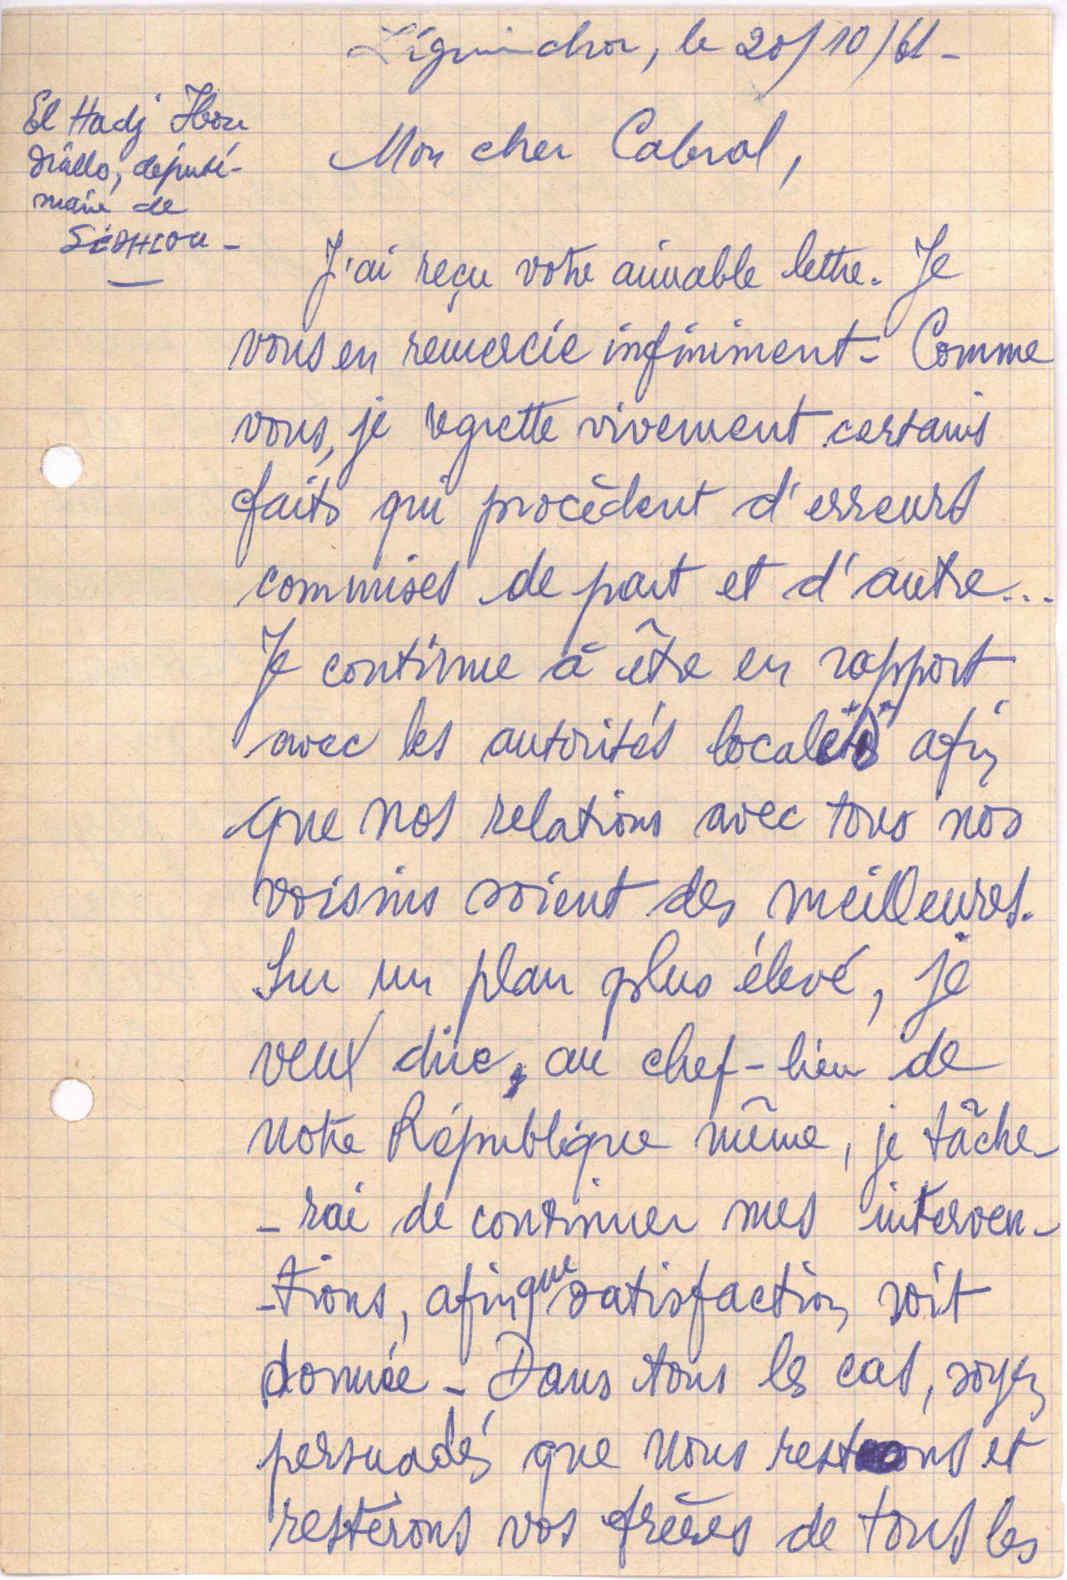 Ziguinchor, le 20/10/61-
El Hadj Ibou
Diallo, député-
maire de
SÉDHIOU -
Mon cher Cabral,
J'ai reçu votre aimable lettre. Je
vous en remercie infiniment - Comme
vous, je regrette vivement certains
faits qui procèdent d'erreurs
commises de part et d'autre...
Je continue à être en rapport
avec les autorités locales afin
que nos relations avec tous nos
voisins soient des meilleures.
Sur un plan plus élevé, je
veux dire, au chef-lieu de
notre République même, je tâche-
- rai de continuer mes interven-
-tions, afin que satisfaction soit
donnée - Dans tous les cas, soyez
persuadés que nous restons et
resterons vos frères de tous les